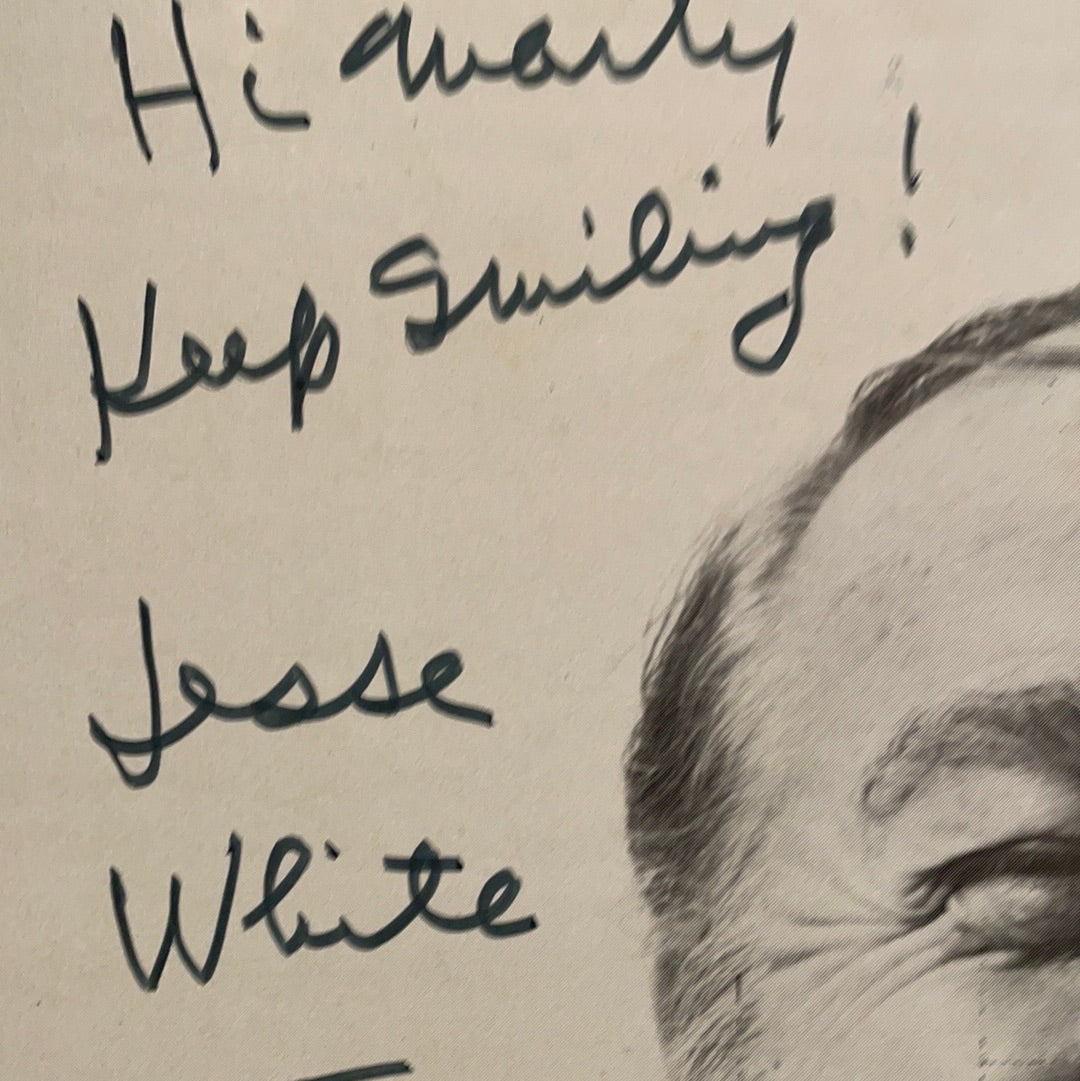 Hi Marty
Keep Smiling!
Jesse
White